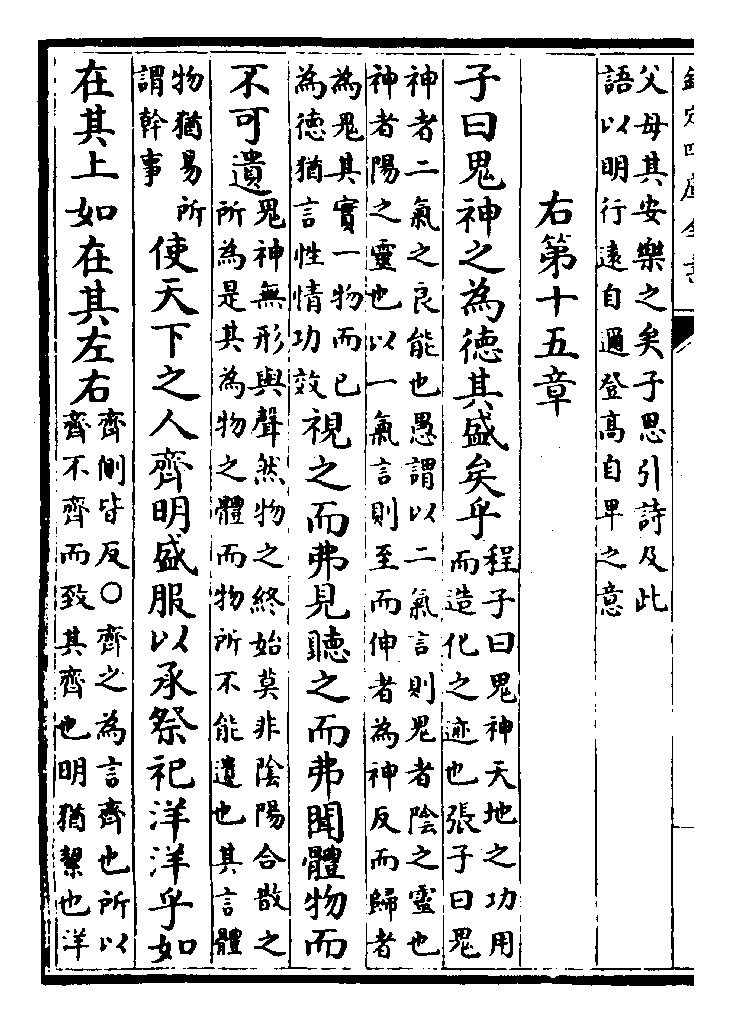 欽定四庫全書
父母其安樂之矣子思引詩及此
語以明行遠自邇登高自卑之意
右第十五章
子曰鬼神之為德其盛矣乎
程子曰鬼神天地之功用
而造化之迹也張子曰鬼
神者二氣之良能也愚謂以二氣言則鬼者陰之靈也
神者陽之靈也以一氣言則至而伸者為神反而歸者
為鬼其實一物而已
為德猶言性情功效
視之而弗見聽之而弗聞體物而
不可遺
鬼神無形與聲然物之終始莫非陰陽合散之
所為是其為物之體而物所不能遺也其言體
物猶易所
謂幹事
使天下之人齊明盛服以承祭祀洋洋乎如
在其上如在其左右
齊側皆反○齊之為言齊也所以
齊不齊而致其齊也明猶絜也洋